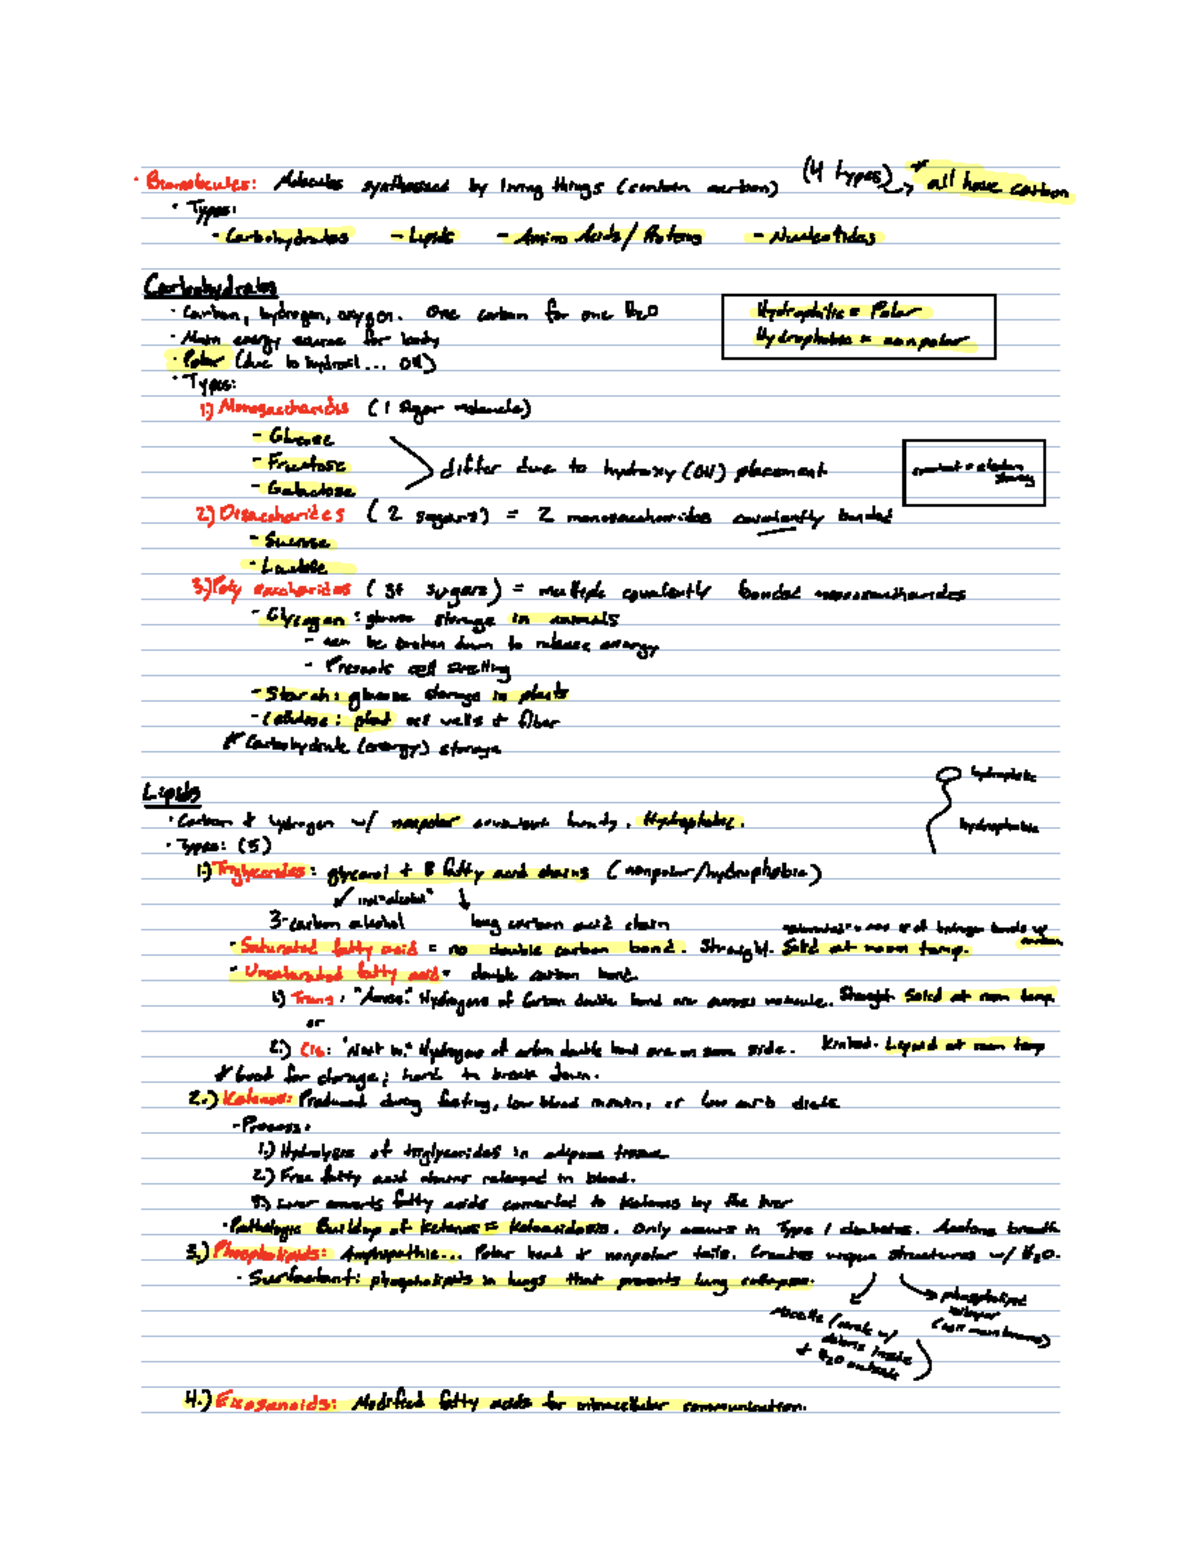 · Biomolecules: Molecules synthesized by living things (contain carbon) (4 types) → * all have carbon
· Types:
- Carbohydrates - Lipids - Amino Acids/Proteins - Nucleotides
Carbohydrates
· Carbon, hydrogen, oxygen. One carbon for one H2O
· Main energy source for body
· Polar (due to hydroxl... OH)
Hydrophilic = Polar
Hydrophobic = nonpolar
· Types:
1.) Monosaccharides (1 sugar molecule)
- Glucose
- Fructose
- Galactose
differ due to hydroxy (OH) placement
covalent = electron sharing
2.) Disaccharides (2 sugars) = 2 monosaccharides covalently bonded
- Sucrose
- Lactose
3.) Polysaccharides (3+ sugars) = multiple covalently bonded monosaccharides
- Glycogen: glucose storage in animals
- can be broken down to release energy
- Prevents cell swelling
- Starch: glucose storage in plants
- Cellulose: plant cell walls + fiber
* Carbohydrate (energy) storage
Lipids
hydrophilic
hydrophobic
· Carbon + hydrogen w/ nonpolar covalent bonds. Hydrophobic.
· Types: (5)
1.) Triglycerides: glycerol + 3 fatty acid chains (nonpolar/hydrophobic)
"alcohol"
3-carbon alcohol long carbon acid chain
"saturated" = max # of hydrogen bonds w/ carbon
- Saturated fatty acid = no double carbon bond. Straight. Solid at room temp.
- Unsaturated fatty acid = double carbon bond.
1.) Trans: "Across." Hydrogens of Carbon double bond are across molecule. Straight. Solid at room temp
or
2.) Cis: "Next to." Hydrogens of carbon double bond are on same side. Kinked. Liquid at room temp
* Good for storage; hard to break down.
2.) Ketones: Produced during fasting, low blood or low carb diets
- Process:
1.) Hydrolysis of triglycerides in adipose tissue
2.) Free fatty acid chains released in blood.
3.) Liver converts fatty acids converted to Ketones by the liver
· Pathologic Buildup of Ketones = Ketoacidosis. Only occurs in Type 1 diabetes. Acetone breath
3.) Phospholipids: Amphipathic... Polar head + nonpolar tails. Creates unique structures w/ H2O.
- Surfactant: phospholipids in lungs that prevents lung collapse.
phospholipid bilayer (cell membrane)
Micelle (circle w/ inside + H2O outside)
4.) Eicosanoids: Modified fatty acids for intracellular communication.